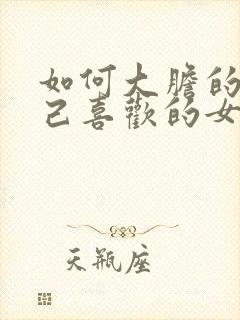 如何大胆的
己喜歡的女
天瓶座